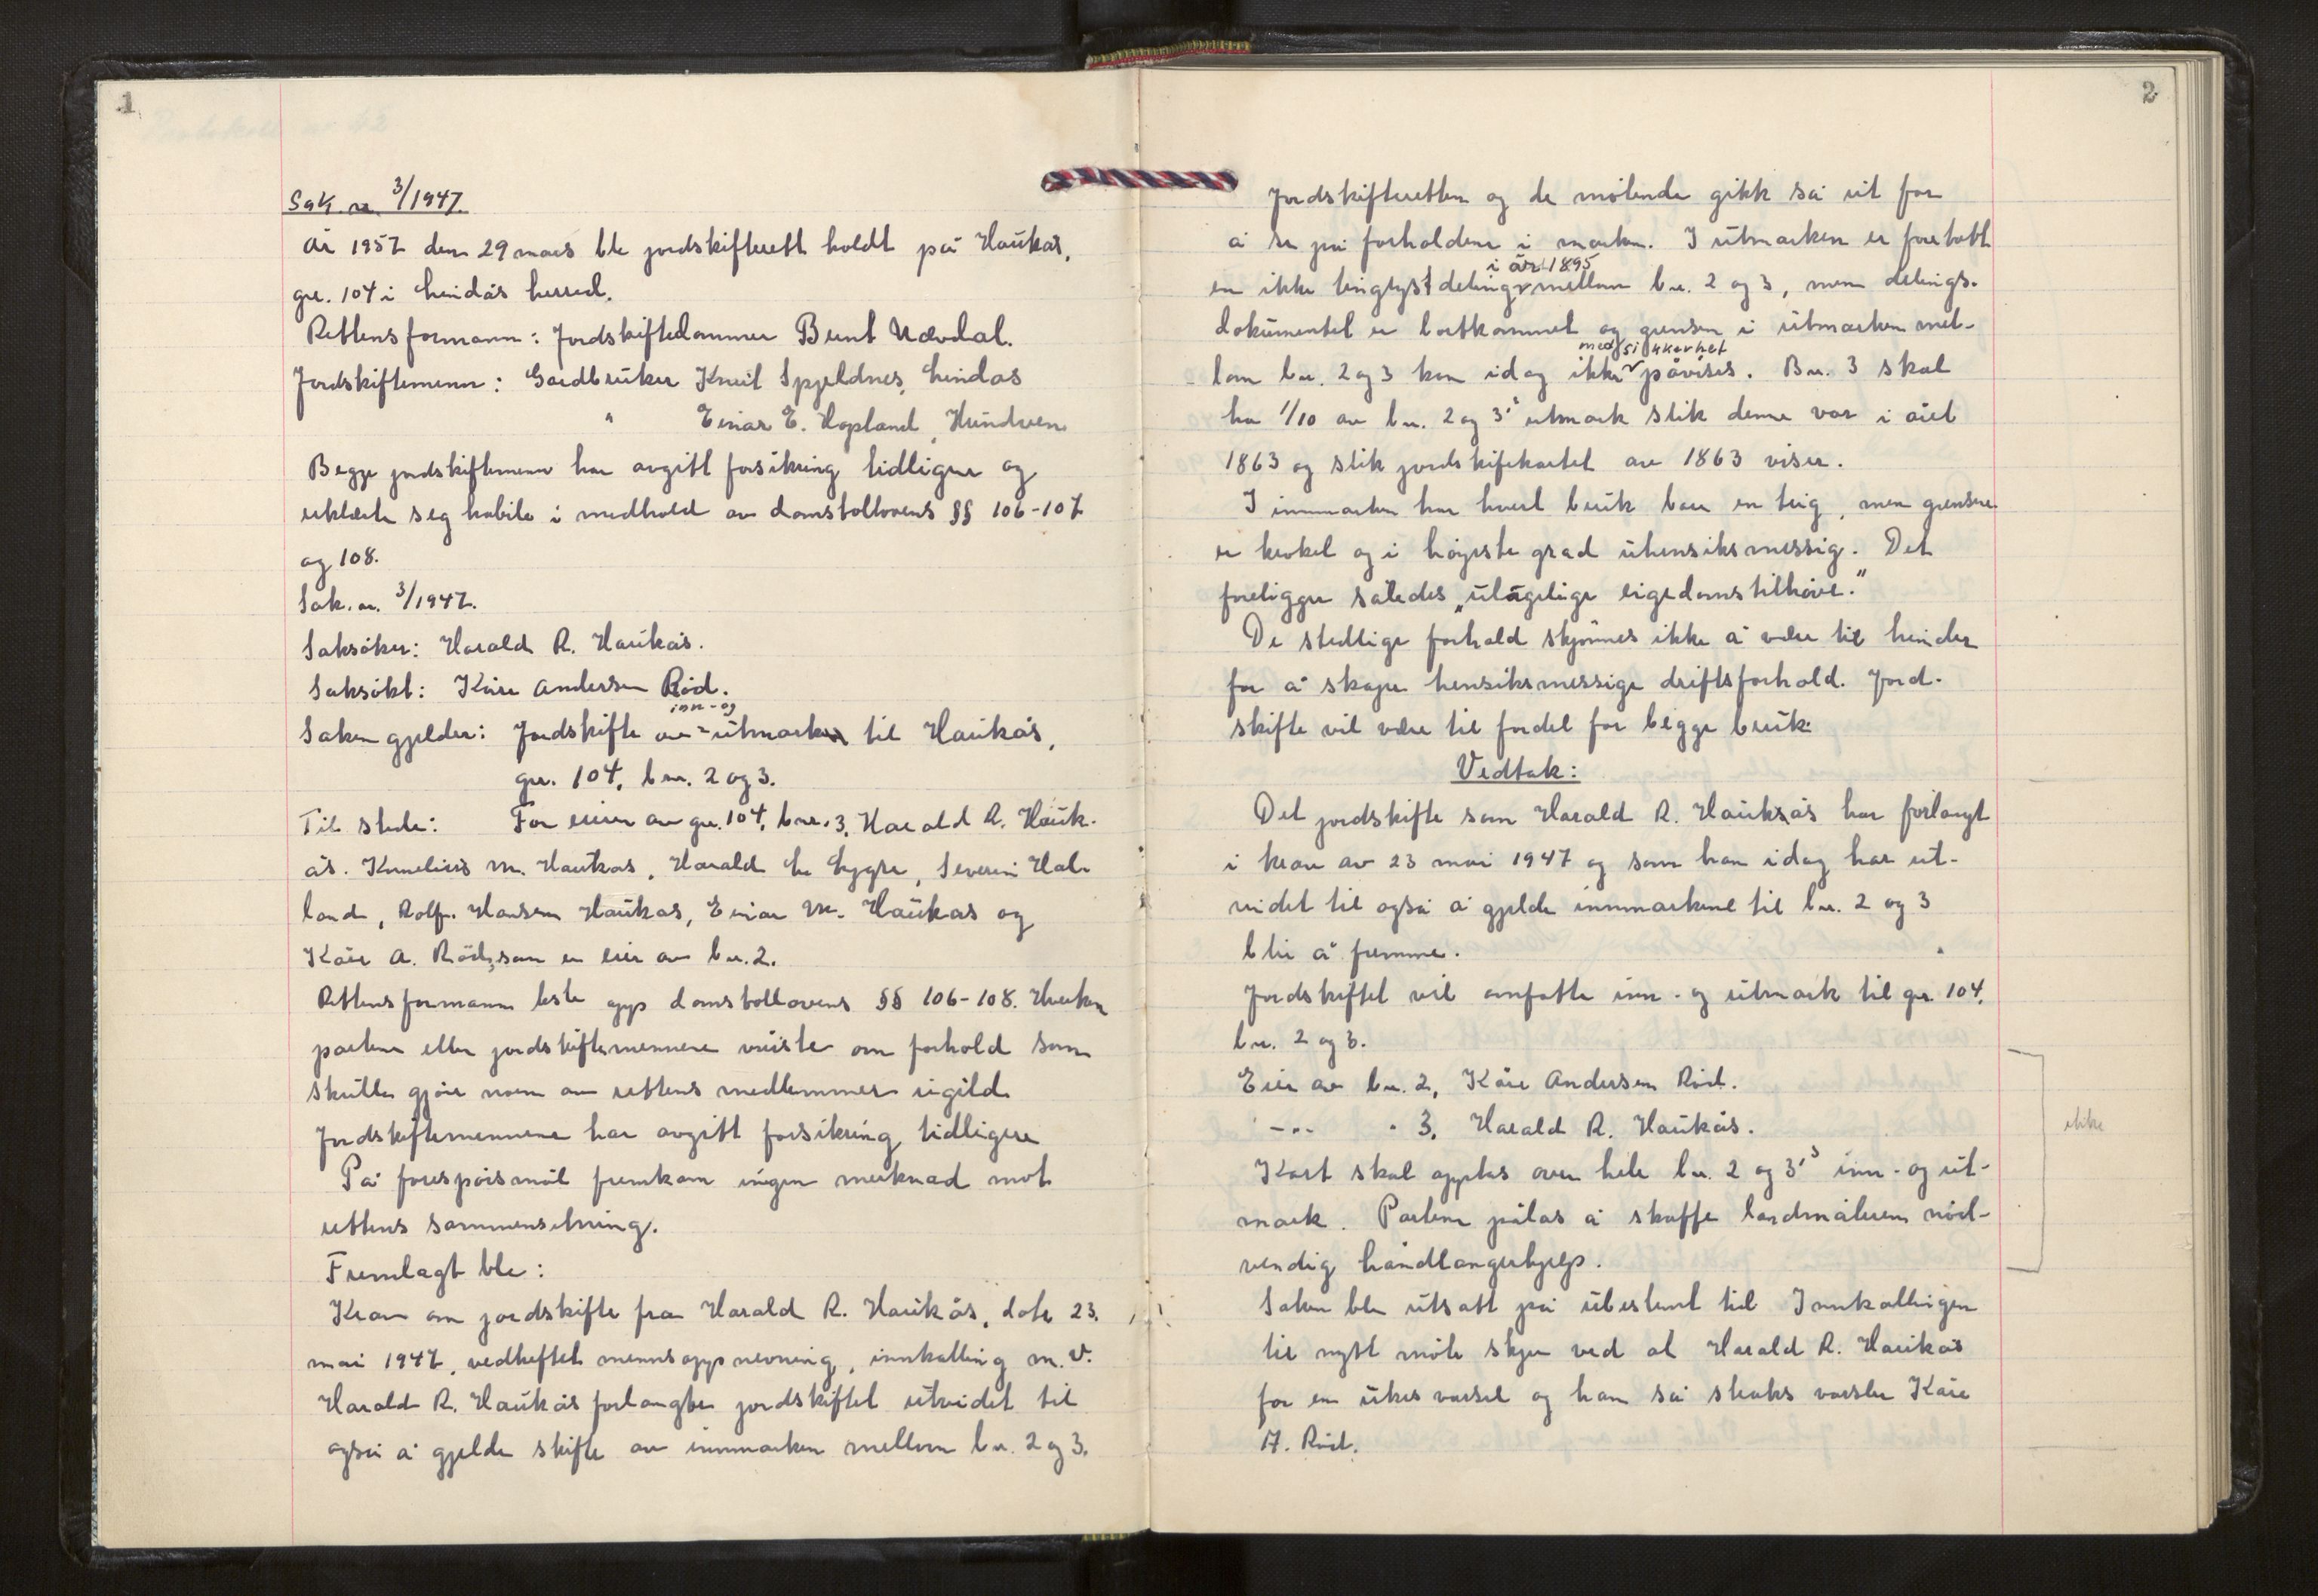 1
Sak nr. 3/1947.
År 1957 den 29 mars ble jordskifterett holdt på Haukås,
gnr. 104 i Lindås herred.
Rettens formann: Jordskiftedommer Bernt Nævdal.
Jordskiftemenn: Gardbruker Knut Spjeldnes, Lindås
" Einar E. Hopland, Hundven
Begge jordskiftemenn har avgitt forsikring tidligere og
erklærte seg habile i medhold av domstollovens §§ 106-107
og 108.
Sak. nr. 3/1947.
Saksøker: Harald R. Haukås.
Saksøkt: Kåre Andersen Röd.
inn-og
Saken gjelder: Jordskifte av utmarken til Haukås,
gnr. 104, bnr. 2 og 3.
Til stede: For eieren av gnr. 104, bnr. 3, Harald R. Hauk-
ås. Kornelius M. Haukås, Harald L. Lygre, Severin Hal-
land, Rolf Hansen Haukås, Einar M. Haukås og
Kåre A. Röd, som er eier av bnr. 2.
Rettens formann leste opp domstollovens §§ 106-108. Hverken
partene eller jordskiftemennene visste om forhold som
skulle gjøre noen av rettens medlemmer ugild.
Jordskiftemennene har avgitt forsikring tidligere
På forespørsmål fremkom ingen merknad mot
rettens sammensetning.
Fremlagt ble:
Krav om jordskifte fra Harald R. Haukås, dat. 23.
mai 1947, vedheftet mennsoppnevning, innkalling m.v.
Harald R. Haukås forlangte jordskiftet utvidet til
også å gjelde skifte av innmarken mellom bnr. 2 og 3.
2
Jordskifteretten og de møtende gikk så ut for
å se på forholdene i marken. I utmarken er foretatt
i år 1895
en ikke tinglyst deling mellom bnr. 2 og 3, men delings-
dokumentet er bortkommet og grensen i utmarken mel-
med sikkerhet
lom bnr. 2 og 3 kan idag ikke påvises. Bnr. 3 skal
ha 1/10 av bnr. 2 og 3's utmark slik denne var i året
1863 og slik jordskifekartet av 1863 viser.
I innmarken har hvert bruk bare en teig, men grensene
er kroket og i høyeste grad uhensiksmessig. Det
foreligger således "ulagelige eigedomstilhøve."
De stedlige forhold skjønnes ikke å være til hinder
for å skape hensiksmessige driftsforhold. Jord-
skifte vil være til fordel for begge bruk.
Vedtak:
Det jordskifte som Harald R. Haukås har forlangt
i krav av 23 mai 1947 og som han idag har ut-
videt til også å gjelde innmarkene til bnr. 2 og 3
blir å fremme.
Jordskiftet vil omfatte inn- og utmark til gnr. 104,
bnr. 2 og 3.
Eier av bnr. 2, Kåre Andersen Röd.
-"- " 3, Harald R. Haukås.
ikke
Kart skal opptas over hele bnr. 2 og 3's inn- og ut-
mark. Partene pålas å skaffe landmåleren nød-
vendig håndlangerhjelp.
Saken ble utsatt på ubestemt tid. Innkallingen
til nytt møte skjer ved at Harald R. Haukås
for en ukes varsel og han så straks varsler Kåre
A. Röd.